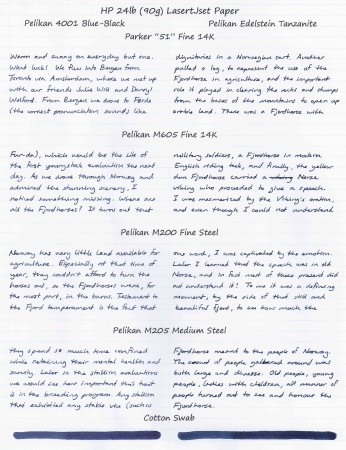 HP 24lb (90g) LaserJet Paper
Pelikan 4001 Blue-Black
Pelikan Edelstein Tanzanite
Parker "51" Fine 14K
Warm and sunny on everyday but one.
What luck! We flew into Bergen from
Toronto via Amsterdam, where we met up
with our friends Julie Will and Darryl
Walford. From Bergen we drove to Førde
(the correct pronunciation sounds like
dignitaries in a Norwegian cart. Another
pulled a log, to represent the use of the
Fjordhorse in agriculture, and the important
role it played in clearing the rocks and stumps
from the bases of the mountains to open up
arable land. There was a Fjordhorse with
Pelikan M605 Fine 14K
Fur-da), which would be the site of
the first youngstock evaluation the next
day. As we drove through Norway and
admired the stunning scenery, I
noticed something missing. Where are
all the Fjordhorses! It turns out that
military soldiers, a Fjordhorse in modern
English riding tack, and finally, the yellow
dun Fjordhorse carried a Norse
viking who proceeded to give a speech.
I was mesmerized by the Viking's oration,
and even though I could not understand
Pelikan M200 Fine Steel
Norway has very little land available for
agriculture. Especially at that time of
year, they couldn't afford to turn the
horses out, so the Fjordhorses were, for
the most part, in the barns. Testament to
the Fjord temperament is the fact that
one word, I was captivated by the emotion.
Later I learned that the speech was in old
Norse, and in fact most of those present did
not understand it! To me it was a defining
moment, by the side of that still and
beautiful fjord, to see how much the
Pelikan M205 Medium Steel
They spend so much time confined
while retaining their mental health and
sanity. Later in the stallion evaluations
we would see how important this trait
is in the breeding program. Any stallion
that exhibited any stable vice (such as
Fjordhorse meant to the people of Norway.
The crowd of people gathered around was
both large and diverse. Old people, young
people, ladies with children, all manner of
people turned out to see and honour the
Fjordhorse.
Cotton Swab